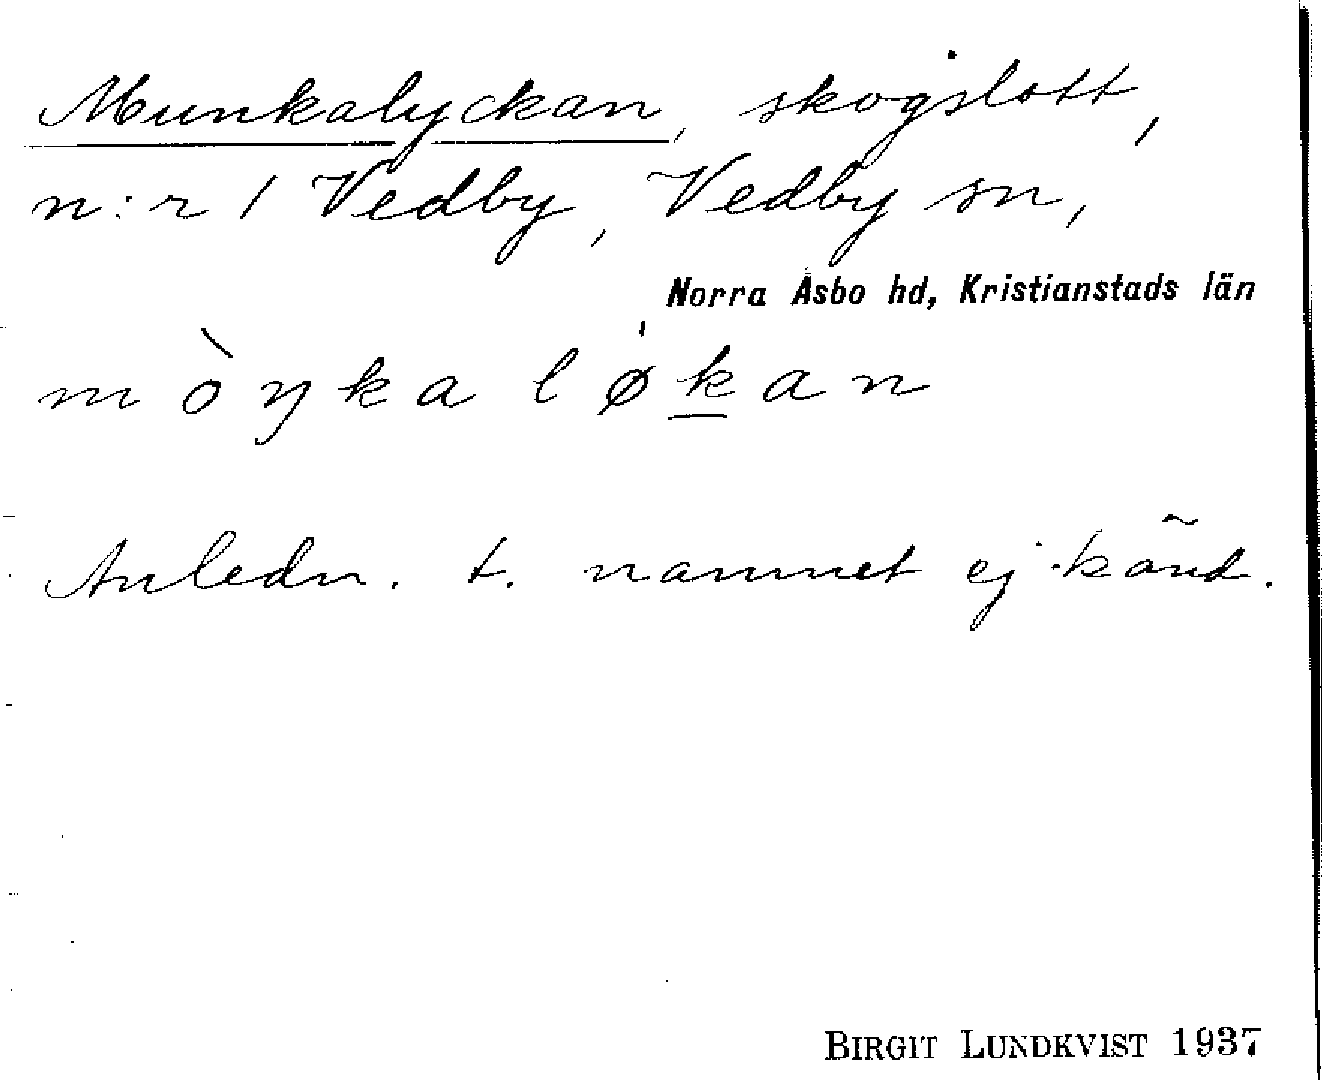 Munkalyckan, skogslott,
n:r 1 Vedby, Vedby sn,
Norra Åsbo hd, Kristianstads län
mòŋkaløḵan
Anledn. t. namnet ej känd.
BIRGIT LUNDKVIST 1937